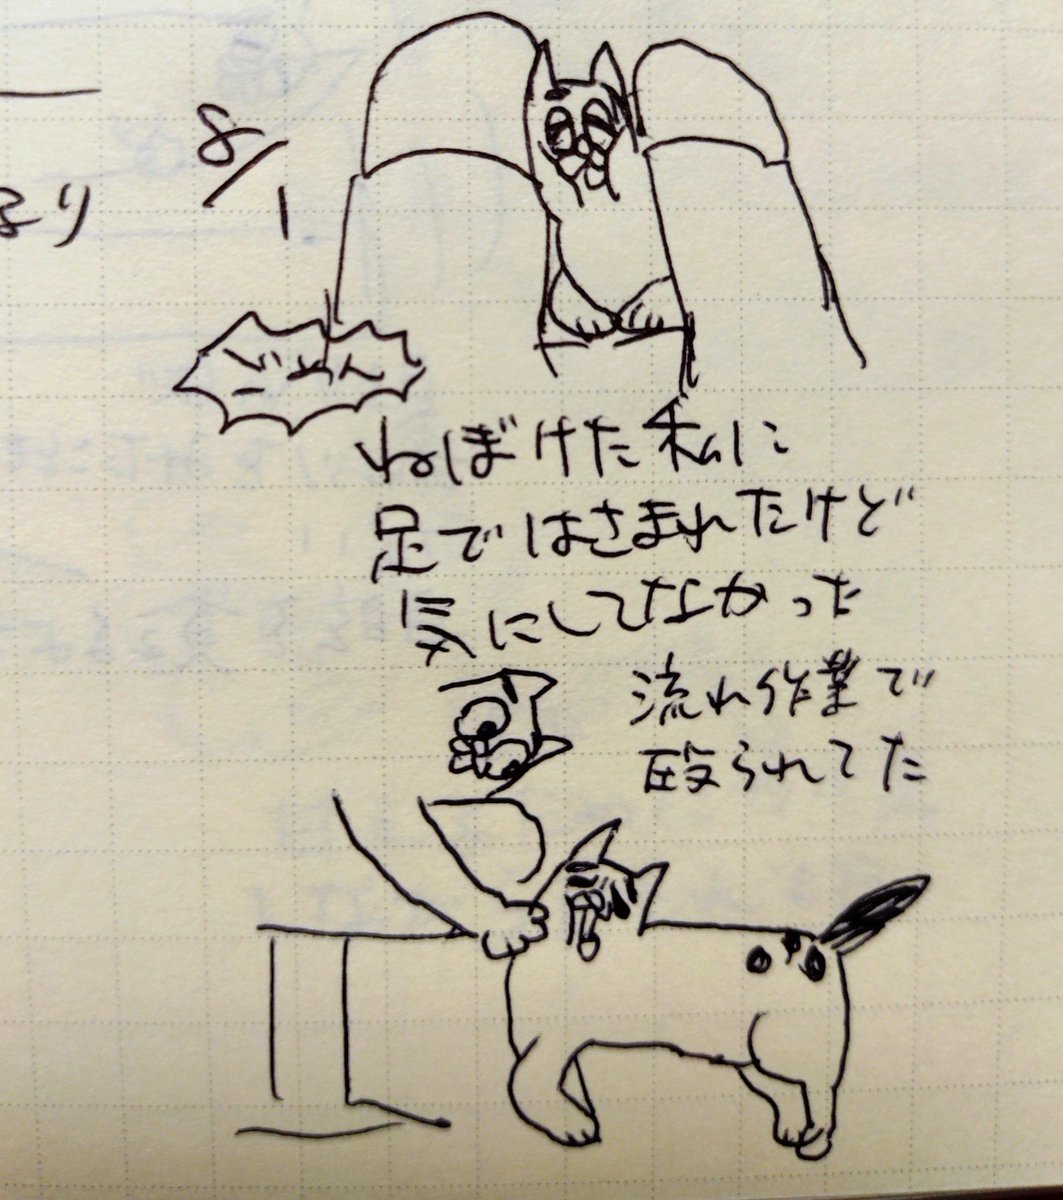 8/1
なり
ごめん
ねぼけた私に
足ではさまれたけど
気にしてなかった
流れ作業で
殴られてた